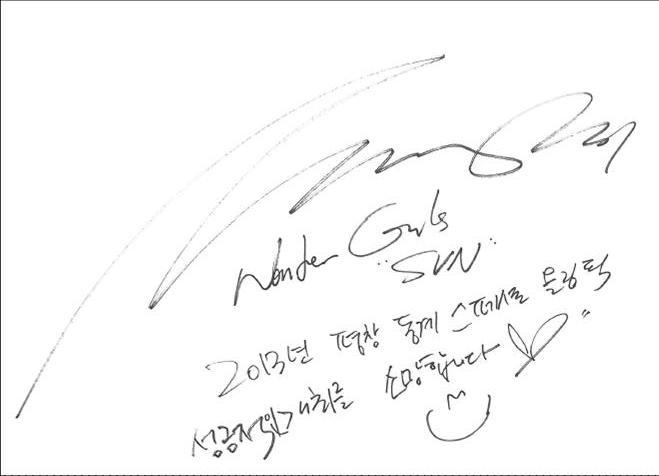 Wonder Girls
"SUN"
2013년 평창 동계 스페셜 올림픽
성공적인 개최를 소망합니다